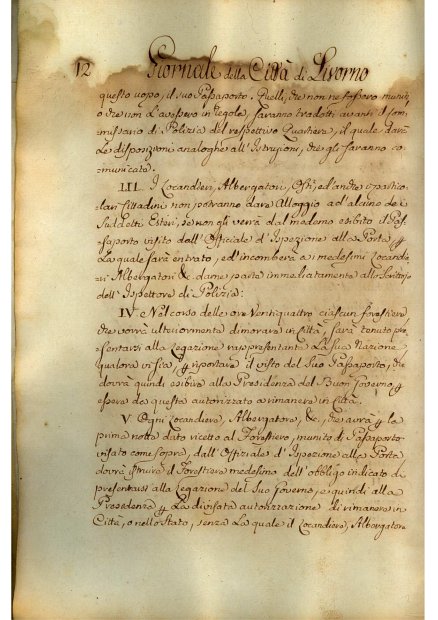 12 Giornale della Città di Livorno
questo uopo, il suo Passaporto. Quelli, che non ne fossero muniti,
o che non l'avessero in regola, saranno tradotti avanti il Com
missario di Polizia del respettivo Quartiere, il quale darà
Le disposizioni analoghe all'Istruzioni, che gli saranno co
municate.
III. I Locandieri, Albergatori, Osti, ed anche i partico
lari Cittadini non potranno dare Alloggio ad alcuno dei
Suddetti Esteri, se non gli verrà dal medemo esibito il Pas
saporto visato dall'Offiziale d'Ispezione alla Porta p
La quale sarà entrato, ed incomberà a' medesimi Locandie
ri Albergatori & darne parte immediatamente allo Scrittojo
dell'Ispettore di Polizia:
IV. Nel corso delle ore Ventiquattro ciascun forestiere,
che vorrà ulteriormente dimorare in Città, sarà tenuto pre
sentarsi alla Legazione rappresentante La Sua Nazione
qualora vi sia, p riportare il visto del Suo Passaporto, che
dovrà quindi esibire alla Presidenza del Buon Governo p
essere da questa autorizzato a rimanere in Città.
V. Ogni Locandiere, Albergatore, &c., che avrà p la
prima notte dato ricetto al Forestiero, munito di Passaporto
visato come sopra, dall'Offiziale d'Ispezione alla Porta
dovrà istruire il Forestiere medesimo dell'obbligo indicato di
presentarsi alla Legazione del Suo Governo, e quindi alla
Presidenza p La divisata autorizzazione di rimanere in
Città, o nello Stato, senza La quale il Locandiere, Albergatore